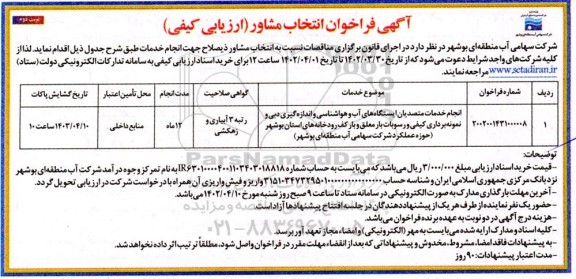 نوبت دوم
آگهی فراخوان انتخاب مشاور (ارزیابی کیفی)
شرکت سهامی آب منطقه‌ای بوشهر در نظر دارد در اجرای قانون برگزاری مناقصات نسبت به انتخاب مشاور ذیصلاح جهت انجام خدمات طبق شرح جدول ذیل اقدام نماید. لذا از
کلیه شرکت‌های واجد شرایط دعوت می‌شود که از تاریخ ۱۴۰۲/۰۳/۳۰ تا تاریخ ۱۴۰۲/۰۴/۰۱ ساعت ۱۲ برای خرید اسناد ارزیابی کیفی به سامانه تدارکات الکترونیکی دولت (ستاد)
www.setadiran.ir مراجعه نمایند.
ردیف شماره فراخوان موضوع خدمات گواهی صلاحیت مدت انجام محل تأمین اعتبار تاریخ گشایش پاکات
۱ ۲۰۰۲۰۰۱۴۳۱۰۰۰۰۰۸ انجام خدمات متصدیان ایستگاه‌های آب و هواشناسی و اندازه‌گیری دبی و نمونه‌برداری کیفی و رسوبات بار معلق و بار کف رودخانه‌های استان بوشهر (حوزه عملکرد شرکت سهامی آب منطقه‌ای بوشهر) رتبه ۳ آبیاری و زهکشی ۱۲ ماه منابع داخلی ۱۴۰۳/۰۴/۱۰ ساعت ۱۰
توضیحات:
- قیمت خرید اسناد ارزیابی مبلغ ۳/۰۰۰/۰۰۰ ریال می‌باشد که می‌بایست به حساب شماره به نام تمرکز وجوه درآمد شرکت آب منطقه‌ای بوشهر
نزد بانک مرکزی جمهوری اسلامی ایران و شناسه حساب واریز و فیش واریزی آن همراه با درخواست شرکت در ارزیابی تحویل گردد.
- آخرین مهلت بارگذاری مدارک به صورت الکترونیکی در سامانه ستاد تا ساعت ۹ صبح روز شنبه مورخ ۱۴۰۲/۰۴/۱۰ می‌باشد.
- حضور یک نفر نماینده از طرف هر یک از پیشنهاد دهندگان در جلسه افتتاح پیشنهادها آزاد است.
- هزینه درج آگهی در دو نوبت به عهده برنده فراخوان می‌باشد.
- کلیه اسناد و مدارک ارایه شده می‌بایست به مهر (الکترونیکی) و امضاء مجاز تعهدآور برسد.
- به پیشنهادات فاقد امضا، مشروط، مخدوش و پیشنهاداتی که بعد از انقضاء مهلت مقرر در فراخوان واصل شود، مطلقاً ترتیب اثر داده نخواهد شد.
- مدت اعتبار پیشنهادات: ۹۰ روز
ParsNamadData
۰۲۱-۸۸۳۴۹۶۷۰-۵